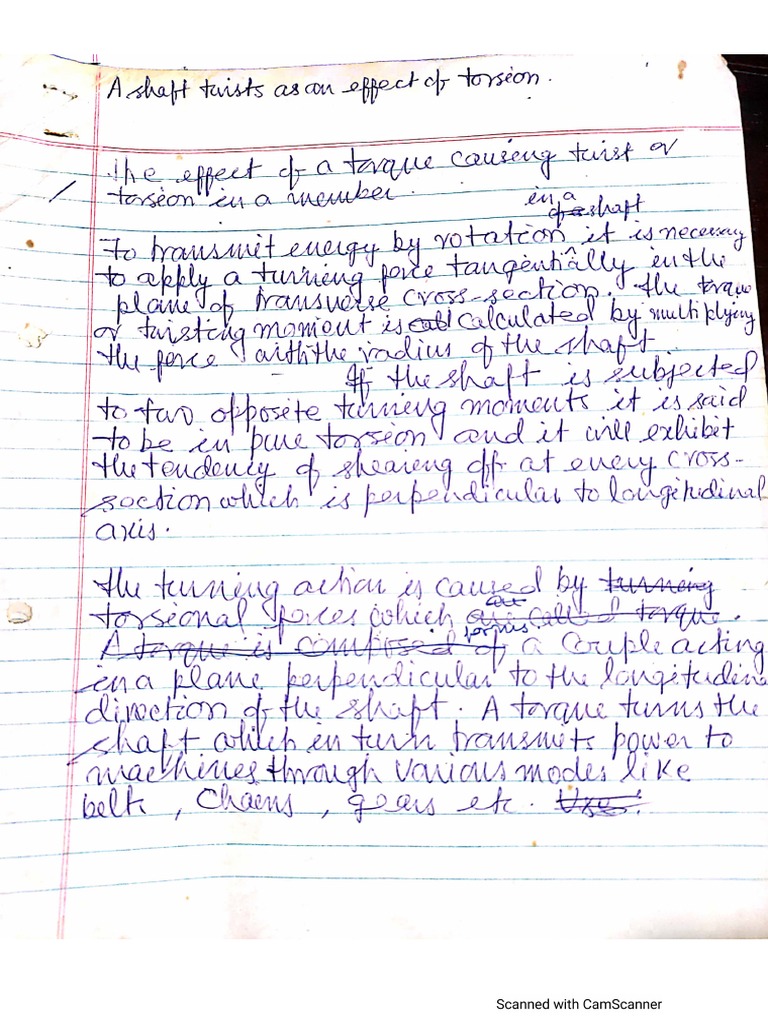 A shaft twists as an effect of torsion.
The effect of a torque causing twist or
torsion in a member.
in a
of a shaft
To transmit energy by rotation it is necessary
to apply a turning force tangentially in the
plane of transverse cross-section. The torque
or twisting moment is cal calculated by multiplying
the force with the radius of the shaft
If the shaft is subjected
to two opposite turning moments it is said
to be in pure torsion and it will exhibit
the tendency of shearing off at every cross-
section which is perpendicular to longitidinal
axis.
The turning action is caused by turning
torsional forces which are called torque.
act
A torque is composed of a couple acting
forms
in a plane perpendicular to the longitudin
direction of the shaft. A torque turns the
shaft which in turn transmits power to
machines through various modes like
belt, chains, gears etc.
Scanned with CamScanner